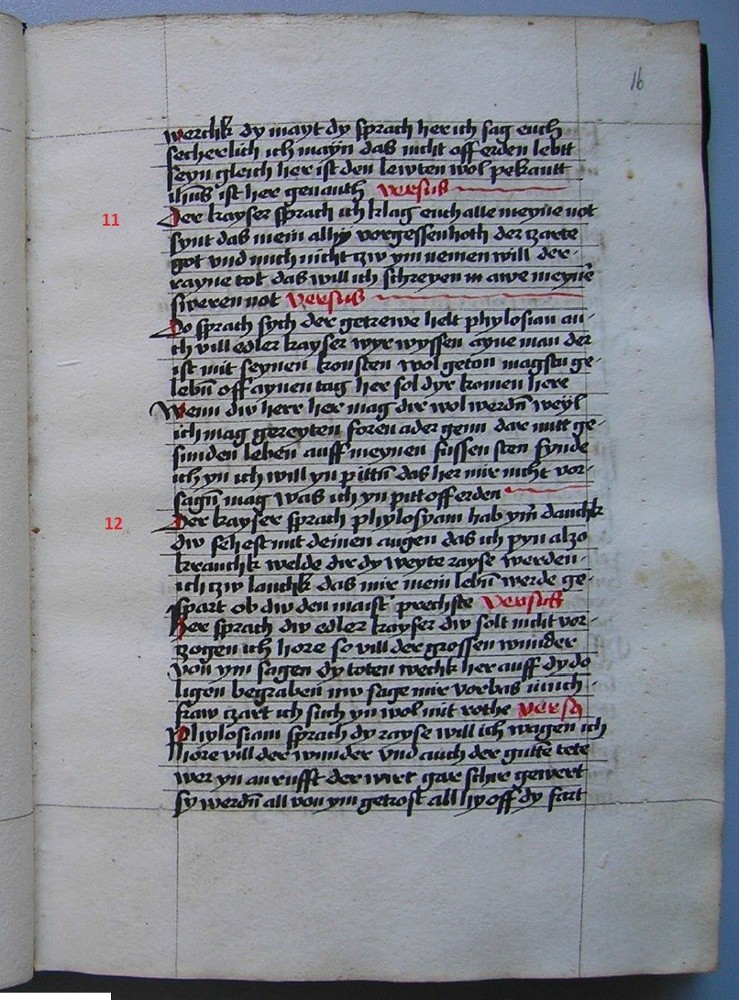 16
werchk dy mayt dy sprach her ich sag euch
secherlich ich mayn das nicht off erden lebtt
seyn gleich her ist den lewten wol pekantt
ihus ist her genanth versus
11
Der kayser sprach ich klag euch alle meyne not
synt das mein alhy vergessen hoth der czarte
got vnd mich nicht czw ym nemen will der
rayne tot das will ich schreyen in awe meyne
sweren not versus
Do sprach sych der getrewe helt phylosian au
ch vill edler kayser wyr wyssen ayne man der
ist mit seynen konsten wol geton magstu ge
lebn off aynen tag her sol dyr komen here
Wenn diw herr her mag dir wol werdn weyl
ich mag gereyten foren ader genn dar mitt ge
sunden leben auff meynen fussen sten fynde
ich yn ich will yn pittn das her mir nicht vor
sagn mag was ich yn pitt off erden
12
Der kayser sprach phylosyam hab ym danchk
diw sehest mit deinen augen das ich pyn alzo
kranchk welde dir dy weyte rayse werden
ich czw lanchk das mir mein lebn werde ge
spart ob diw den maist prechste versus
Her sprach diw edler kayser diw solt nicht vor
zogen ich hore so vill der grossen wunder
von ym sagen dy toten wechk her auff dy do
ligen begraben nw sage mir vorbas iunch
fraw czart ich such yn wol mit rothe versq
Phylosiam sprach dy rayse will ich wagen ich
hore vill der wunder vnd auch der gutte tete
wer yn an rufft der wirt gar schir gewert
sy werdn all von ym getrost all hy off dy fart